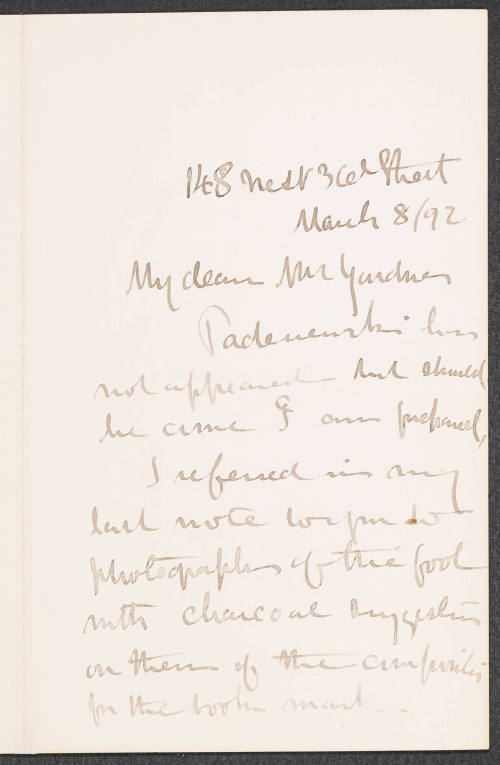 148 West 36th Street
March 8/92
My dear Mrs Gardner
Paderewski has
not appeared but should
he come I am prepared,
I referred in my
last note to you to
photographs of the pool
with charcoal suggestions
on them of the composition
for the book mark..